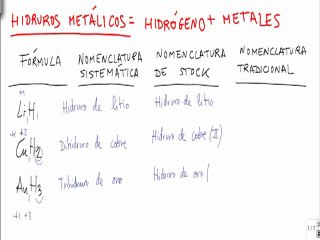 HIDRUROS METÁLICOS = HIDRÓGENO + METALES
FÓRMULA NOMENCLATURA SISTEMÁTICA NOMENCLATURA DE STOCK NOMENCLATURA TRADICIONAL
+1
Li₁H₁ Hidruro de litio Hidruro de litio
+1 +2
Cu₁H₂ Dihidruro de cobre Hidruro de cobre (II)
Au₁H₃ Trihidruro de oro Hidruro de oro (
+1 +3
1/1